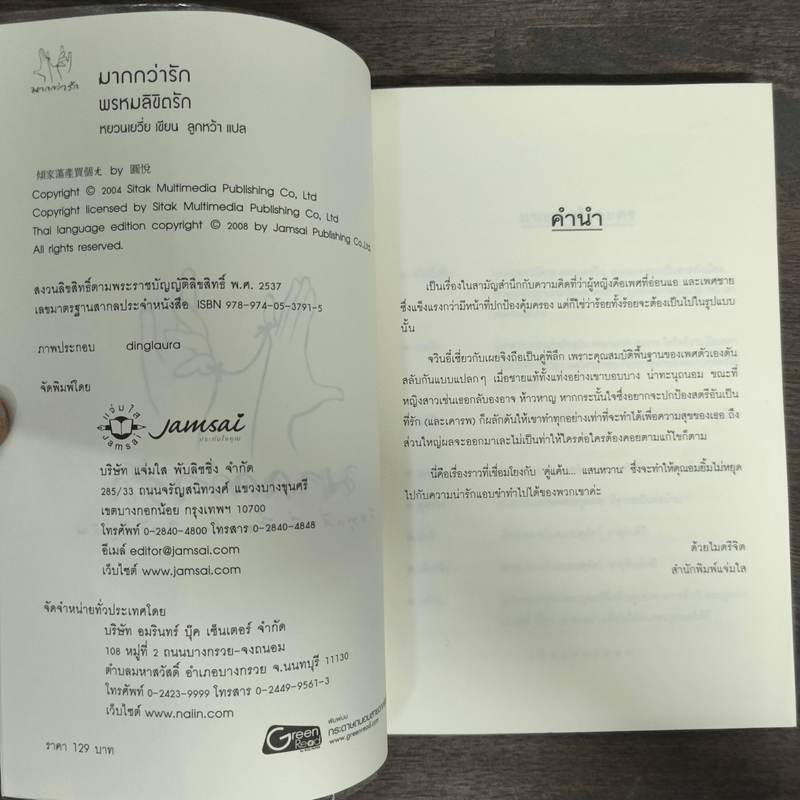 มากกว่ารัก
มากกว่ารัก
พรหมลิขิตรัก
หยวนเยวี่ย เขียน ลูกหว้า แปล
傾家蕩產買個尢 by 圓悅
Copyright © 2004 Sitak Multimedia Publishing Co, Ltd
Copyright licensed by Sitak Multimedia Publishing Co, Ltd
Thai language edition copyright © 2008 by Jamsai Publishing Co,Ltd
All rights reserved.
สงวนลิขสิทธิ์ตามพระราชบัญญัติลิขสิทธิ์ พ.ศ. 2537
เลขมาตรฐานสากลประจำหนังสือ ISBN 978-974-05-3791-5
ภาพประกอบ dinglaura
จัดพิมพ์โดย
แจ่มใส
Jamsai
Jamsai
ประทับใจคุณ
บริษัท แจ่มใส พับลิชชิ่ง จำกัด
285/33 ถนนจรัญสนิทวงศ์ แขวงบางขุนศรี
เขตบางกอกน้อย กรุงเทพฯ 10700
โทรศัพท์ 0-2840-4800 โทรสาร 0-2840-4848
อีเมล์ editor@jamsai.com
เว็บไซต์ www.jamsai.com
จัดจำหน่ายทั่วประเทศโดย
บริษัท อมรินทร์ บุ๊ค เซ็นเตอร์ จำกัด
108 หมู่ที่ 2 ถนนบางกรวย-จงถนอม
ตำบลมหาสวัสดิ์ อำเภอบางกรวย จ.นนทบุรี 11130
โทรศัพท์ 0-2423-9999 โทรสาร 0-2449-9561-3
เว็บไซต์ www.naiin.com
Green
Read
พิมพ์บน
กระดาษถนอมสายตา
www.greenread.com
ราคา 129 บาท
คำนำ
เป็นเรื่องในสามัญสำนึกกับความคิดที่ว่าผู้หญิงคือเพศที่อ่อนแอ และเพศชาย
ซึ่งแข็งแรงกว่ามีหน้าที่ปกป้องคุ้มครอง แต่ก็ใช่ว่าร้อยทั้งร้อยจะต้องเป็นไปในรูปแบบ
นั้น
จวินอี้เซี่ยวกับเผยจิงถือเป็นคู่พิลึก เพราะคุณสมบัติพื้นฐานของเพศตัวเองดัน
สลับกันแบบแปลกๆ เมื่อชายแท้ทั้งแท่งอย่างเขาบอบบาง น่าทะนุถนอม ขณะที่
หญิงสาวเช่นเธอกลับองอาจ ห้าวหาญ หากกระนั้นใจซึ่งอยากจะปกป้องสตรีอันเป็น
ที่รัก (และเคารพ) ก็ผลักดันให้เขาทำทุกอย่างเท่าที่จะทำได้เพื่อความสุขของเธอ ถึง
ส่วนใหญ่ผลจะออกมาเละไม่เป็นท่าให้ใครต่อใครต้องคอยตามแก้ไขก็ตาม
นี่คือเรื่องราวที่เชื่อมโยงกับ 'คู่แค้น... แสนหวาน' ซึ่งจะทำให้คุณอมยิ้มไม่หยุด
ไปกับความน่ารักแอบขำทำไปได้ของพวกเขาค่ะ
ด้วยไมตรีจิต
สำนักพิมพ์แจ่มใส